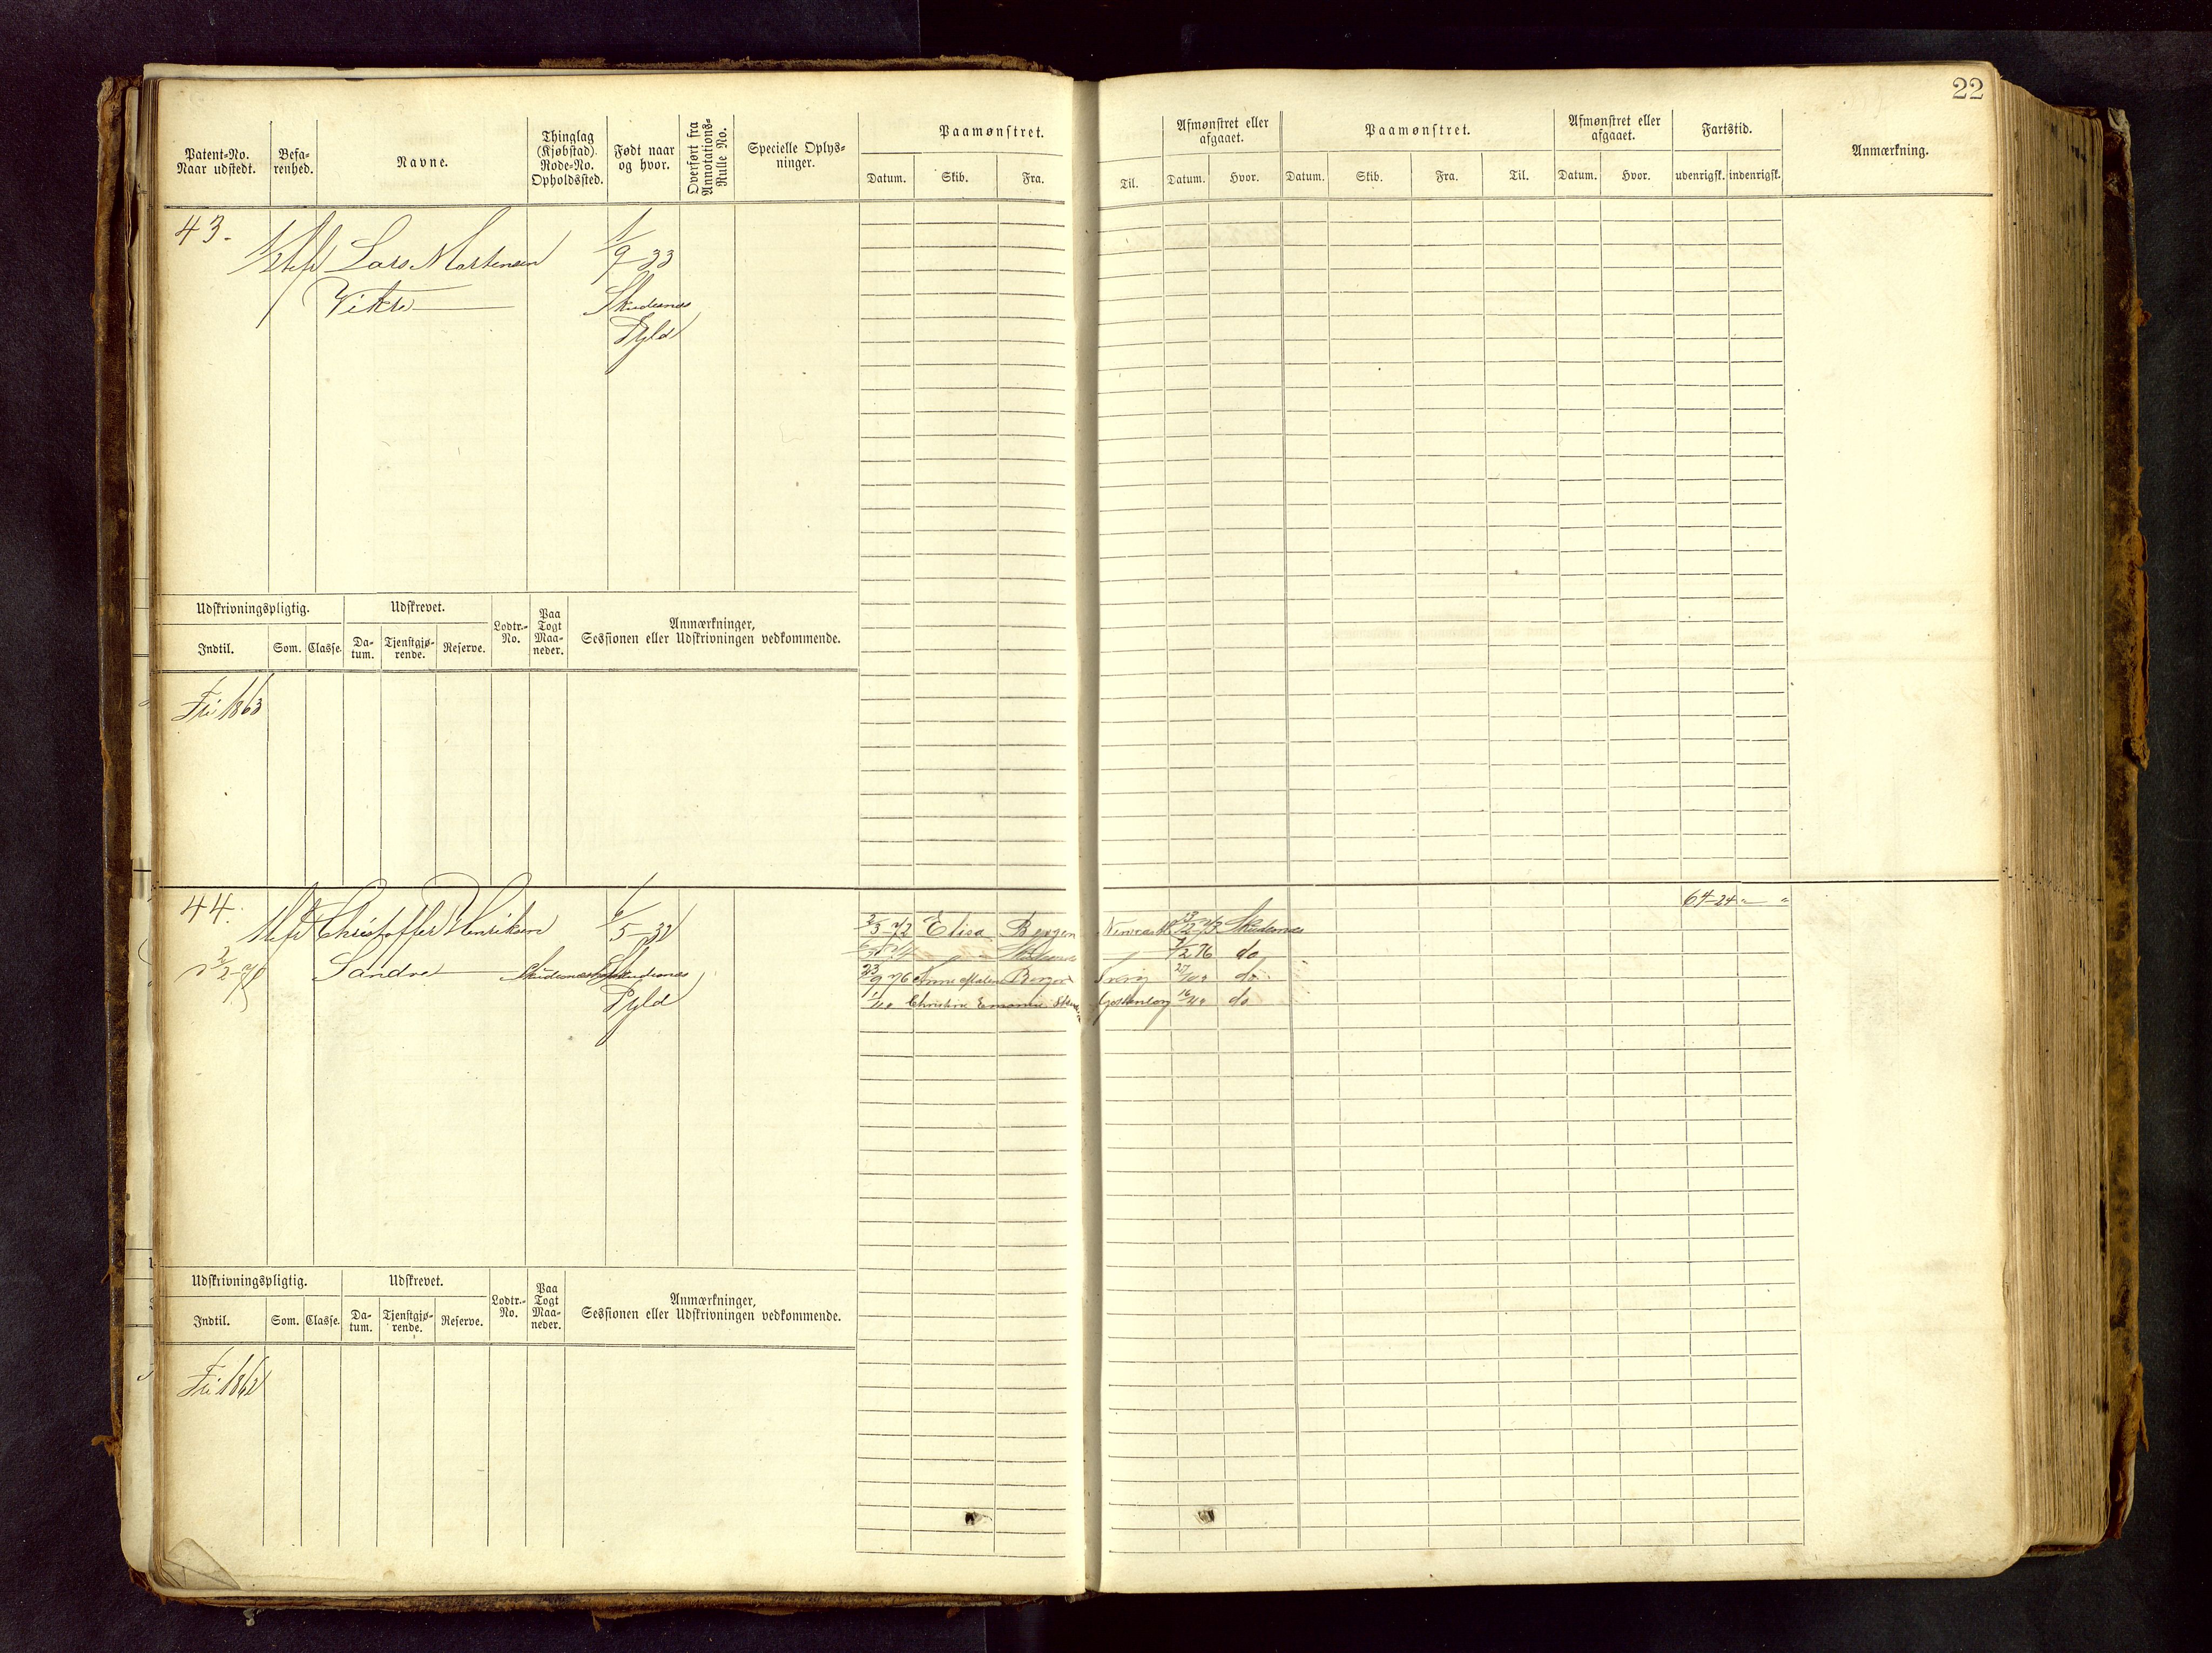 22
Patent-No.
Naar udstedt.
Befa-
renhed.
Navne.
Thinglag
(Kjøbstad).
Rode-No.
Opholdssted.
Født naar
og hvor.
Overført fra
Annotations-
Rulle No.
Specielle Oplys-
ninger.
Paamønstret.
Datum.
Skib.
Fra.
Til.
Afmønstret eller
afgaaet.
Datum.
Hvor.
Paamønstret.
Datum.
Skib.
Fra.
Til.
Afmønstret eller
afgaaet.
Datum.
Hvor.
Fartstid.
udenrigsk.
indenrigsk.
Anmærkning.
43.
Lars Martensen
Vikre
1/9-33
Skudesnes
Pgld
Udskrivningspligtig.
Indtil.
Som.
Classe.
Udskrevet.
Da-
tum.
Tjenstgjø-
rende.
Reserve.
Lodtr.-
No.
Paa
Togt
Maa-
neder.
Anmærkninger,
Sessionen eller Udskrivningen vedkommende.
Fri 1863
44.
Christoffer Henriksen
Sandve
6/5-32
Skudesnes
Pgld
64-24
72 Elisa Bergen
Skudesnes
7/2 76 do
23/9 76 Anne Malene Bergen
Sverig 27/10 do
Christine
Gothenborg 16/10 do
Udskrivningspligtig.
Indtil.
Som.
Classe.
Udskrevet.
Da-
tum.
Tjenstgjø-
rende.
Reserve.
Lodtr.-
No.
Paa
Togt
Maa-
neder.
Anmærkninger,
Sessionen eller Udskrivningen vedkommende.
Fri 1862